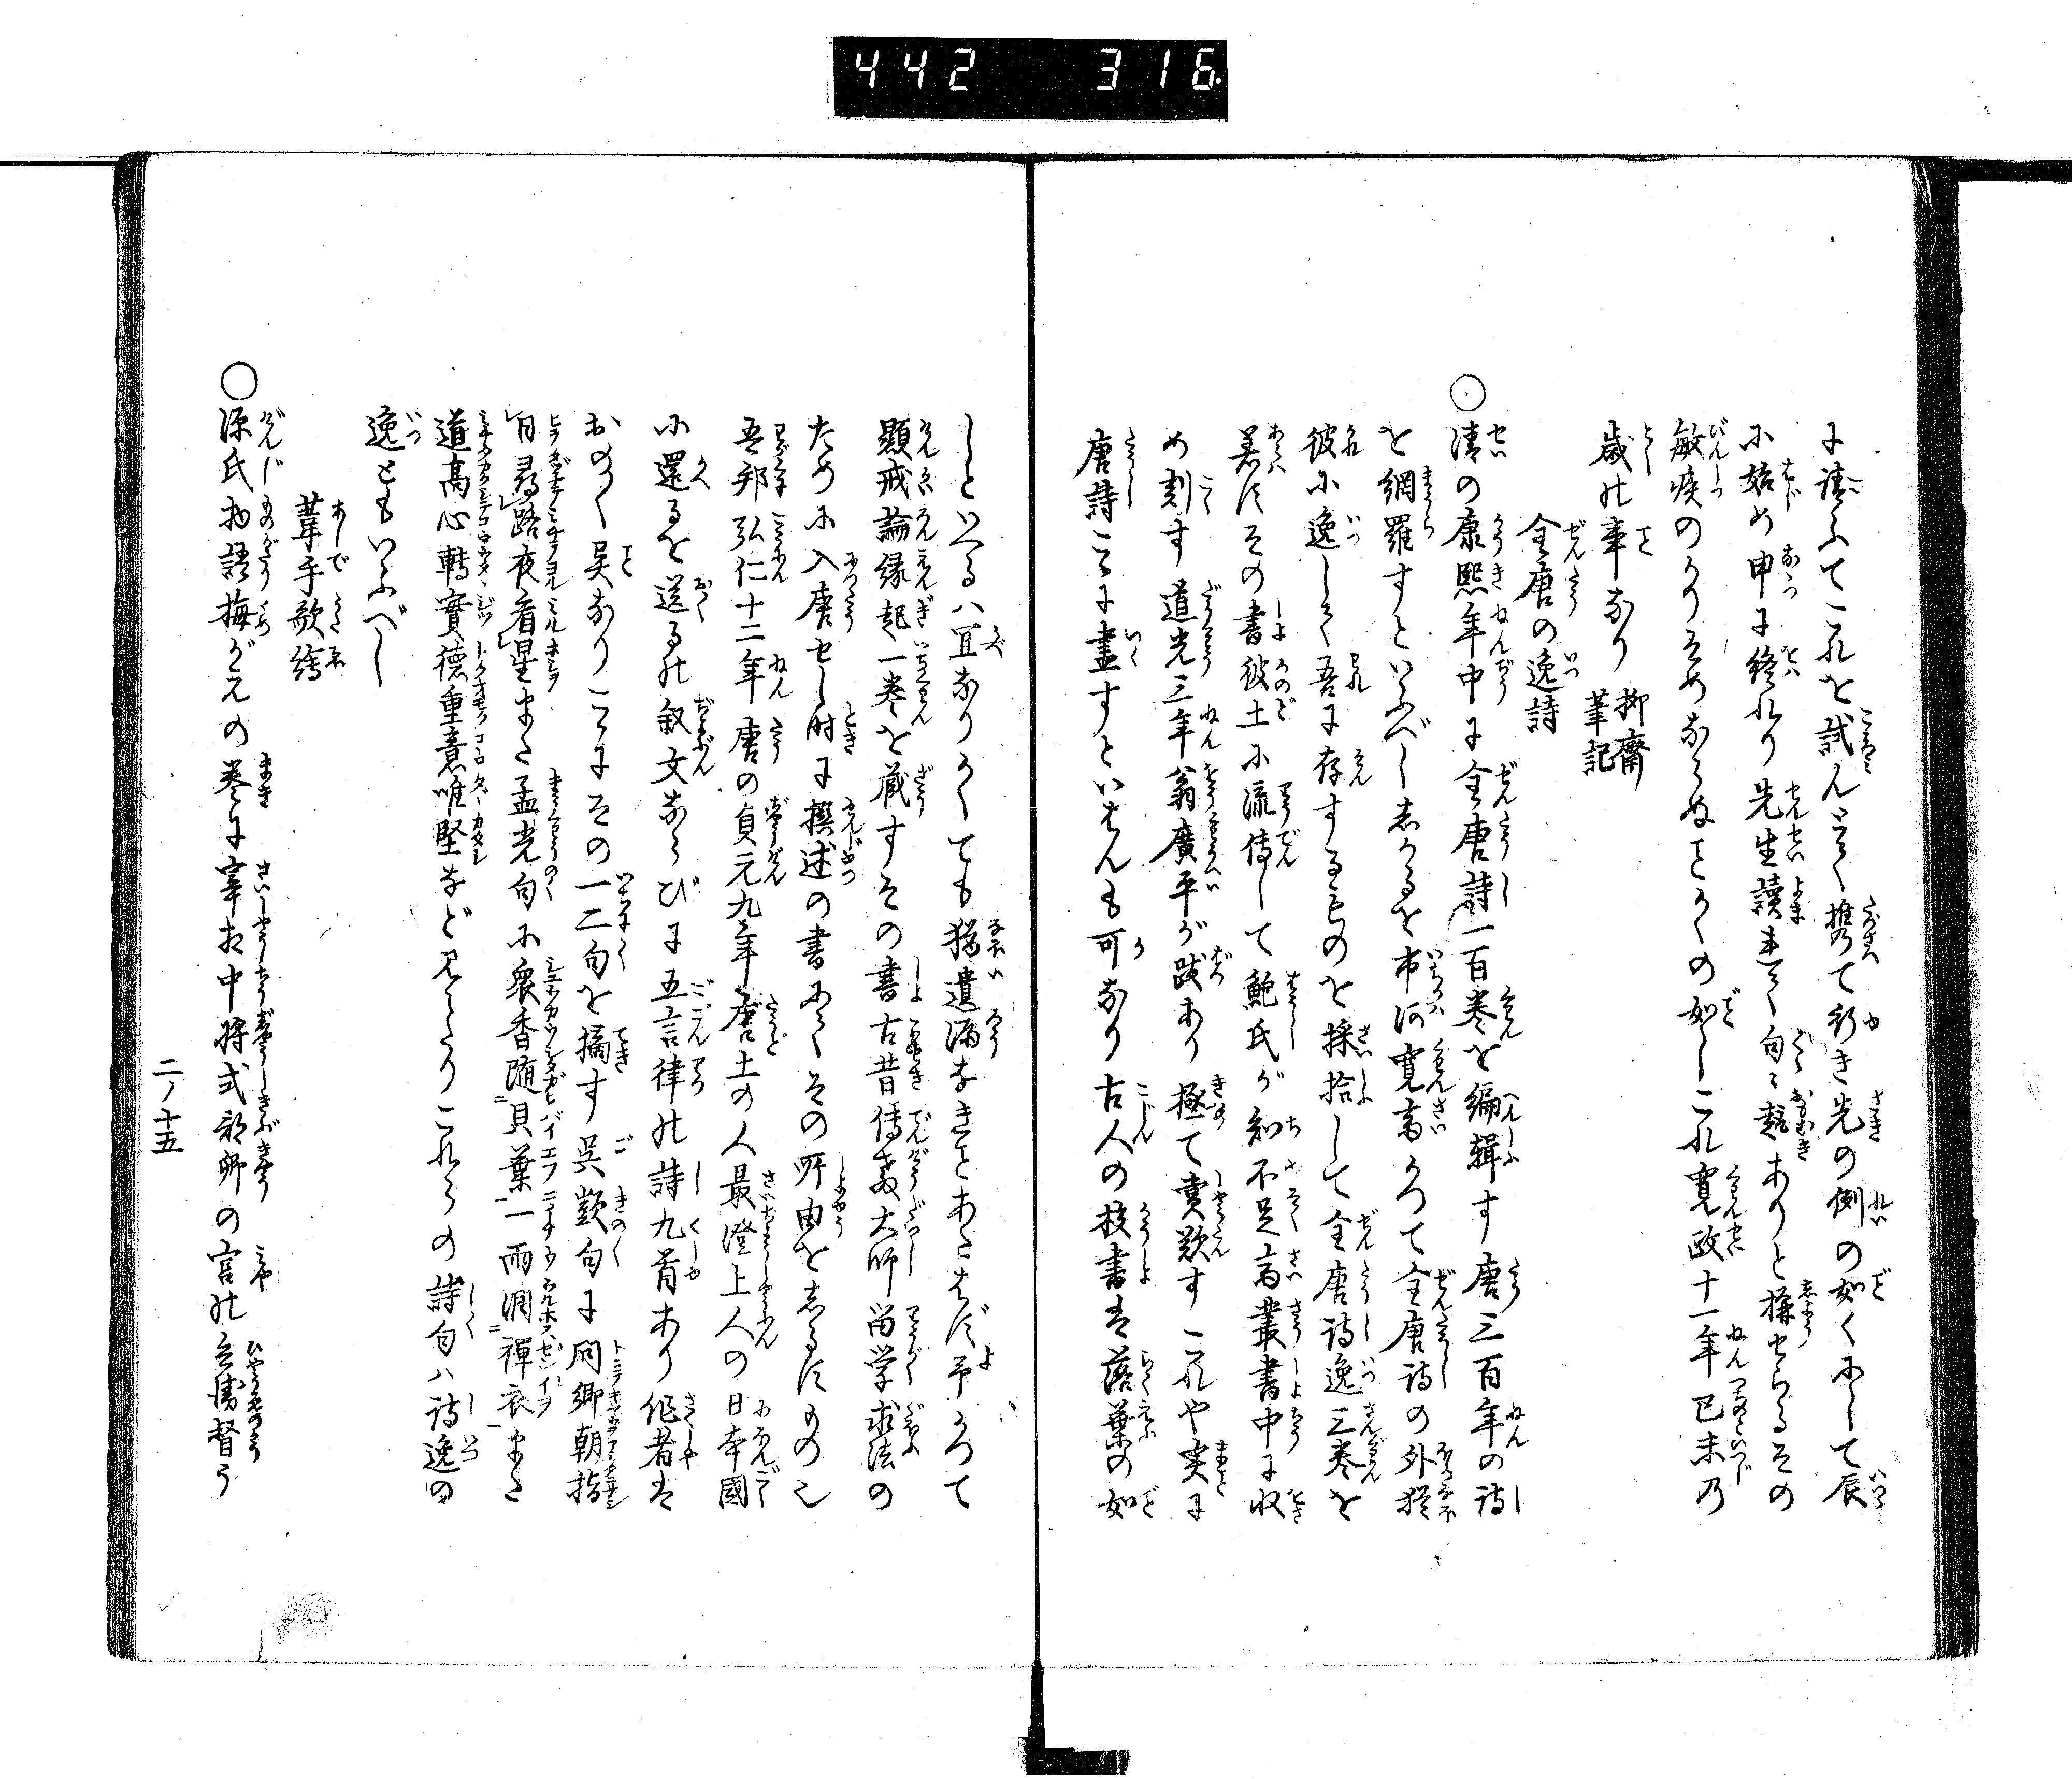 442 316
に請ふてこれを試んとて携て行き先の例の如くにして辰
に始め申に終れり先生讀進て句々趣ありと称せらるその
敏疾のかりそめならぬことかくの如しこれ寛政十一年己未乃
歳の事なり 抑齋筆記
全唐の逸詩
○清の康熙年中に全唐詩一百巻を編輯す唐三百年の詩
を網羅すといふべししかるを市河寛斎かつて全唐詩の外猶
彼に逸して吾に存するものを採拾して全唐詩逸三巻を
著はすその書彼土に流傳して鮑氏が知不足斎叢書中に収
め刻す道光三年翁廣平が跋あり極て賞歎すこれや実に
唐詩こゝに盡すといはんも可なり古人の校書は落葉の如
しといへるハ宜なりかくても猶遺漏なきことあたはず予かつて
顕戒論縁起一巻を蔵すその書古昔傳教大師留学求法の
ために入唐せし時に撰述の書にてその所由をしるすもの也
吾邦弘仁十二年唐の貞元九年唐土の人最澄上人の日本國
に還るを送るの叙文ならびに五言律の詩九首あり作者は
おの〳〵異なりこゝにその一二句を摘す呉顗句に問郷朝指
日尋路夜看星また孟光句に衆香随貝葉一雨潤禅衣また
道髙心轉實徳重意唯堅など見えたりこれらの詩句ハ詩逸の
逸ともいふべし
葦手歌繪
○源氏物語梅がえの巻に宰相中将式部卿の宮の兵衛督う
二ノ十五